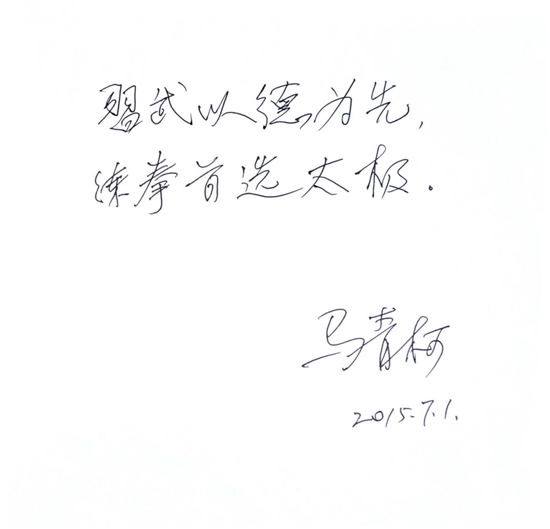 习武以德为先，
练拳首选太极．
马青柯
2015.7.1.